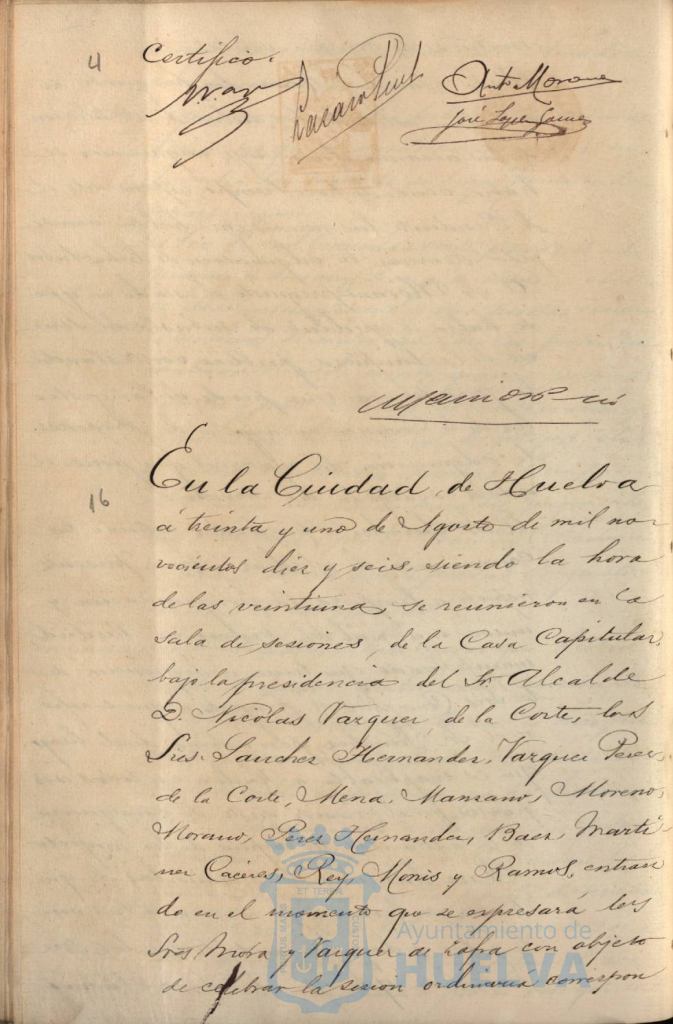 4
Certifico.
Anto Morano
José López Gómez
16
En la Ciudad de Huelva
á treinta y uno de Agosto de mil no-
vecientos diez y seis, siendo la hora
de las veintiuna, se reunieron en la
sala de sesiones, de la Casa Capitular,
bajo la presidencia del Sr. Alcalde
D. Nicolas Vazquez de la Corte, los
Sres. Sanchez Hernandez, Vazquez Perez,
de la Corte, Mena, Manzano, Moreno,
Morano, Perez Hernandez, Baez, Marti-
nez Cáceres, Rey, Monis y Ramos, entran
do en el momento que se expresará los
Sres Mora y Vazquez de Zafra con objeto
de celebrar la sesion ordinaria correspon
Ayuntamiento de
HUELVA